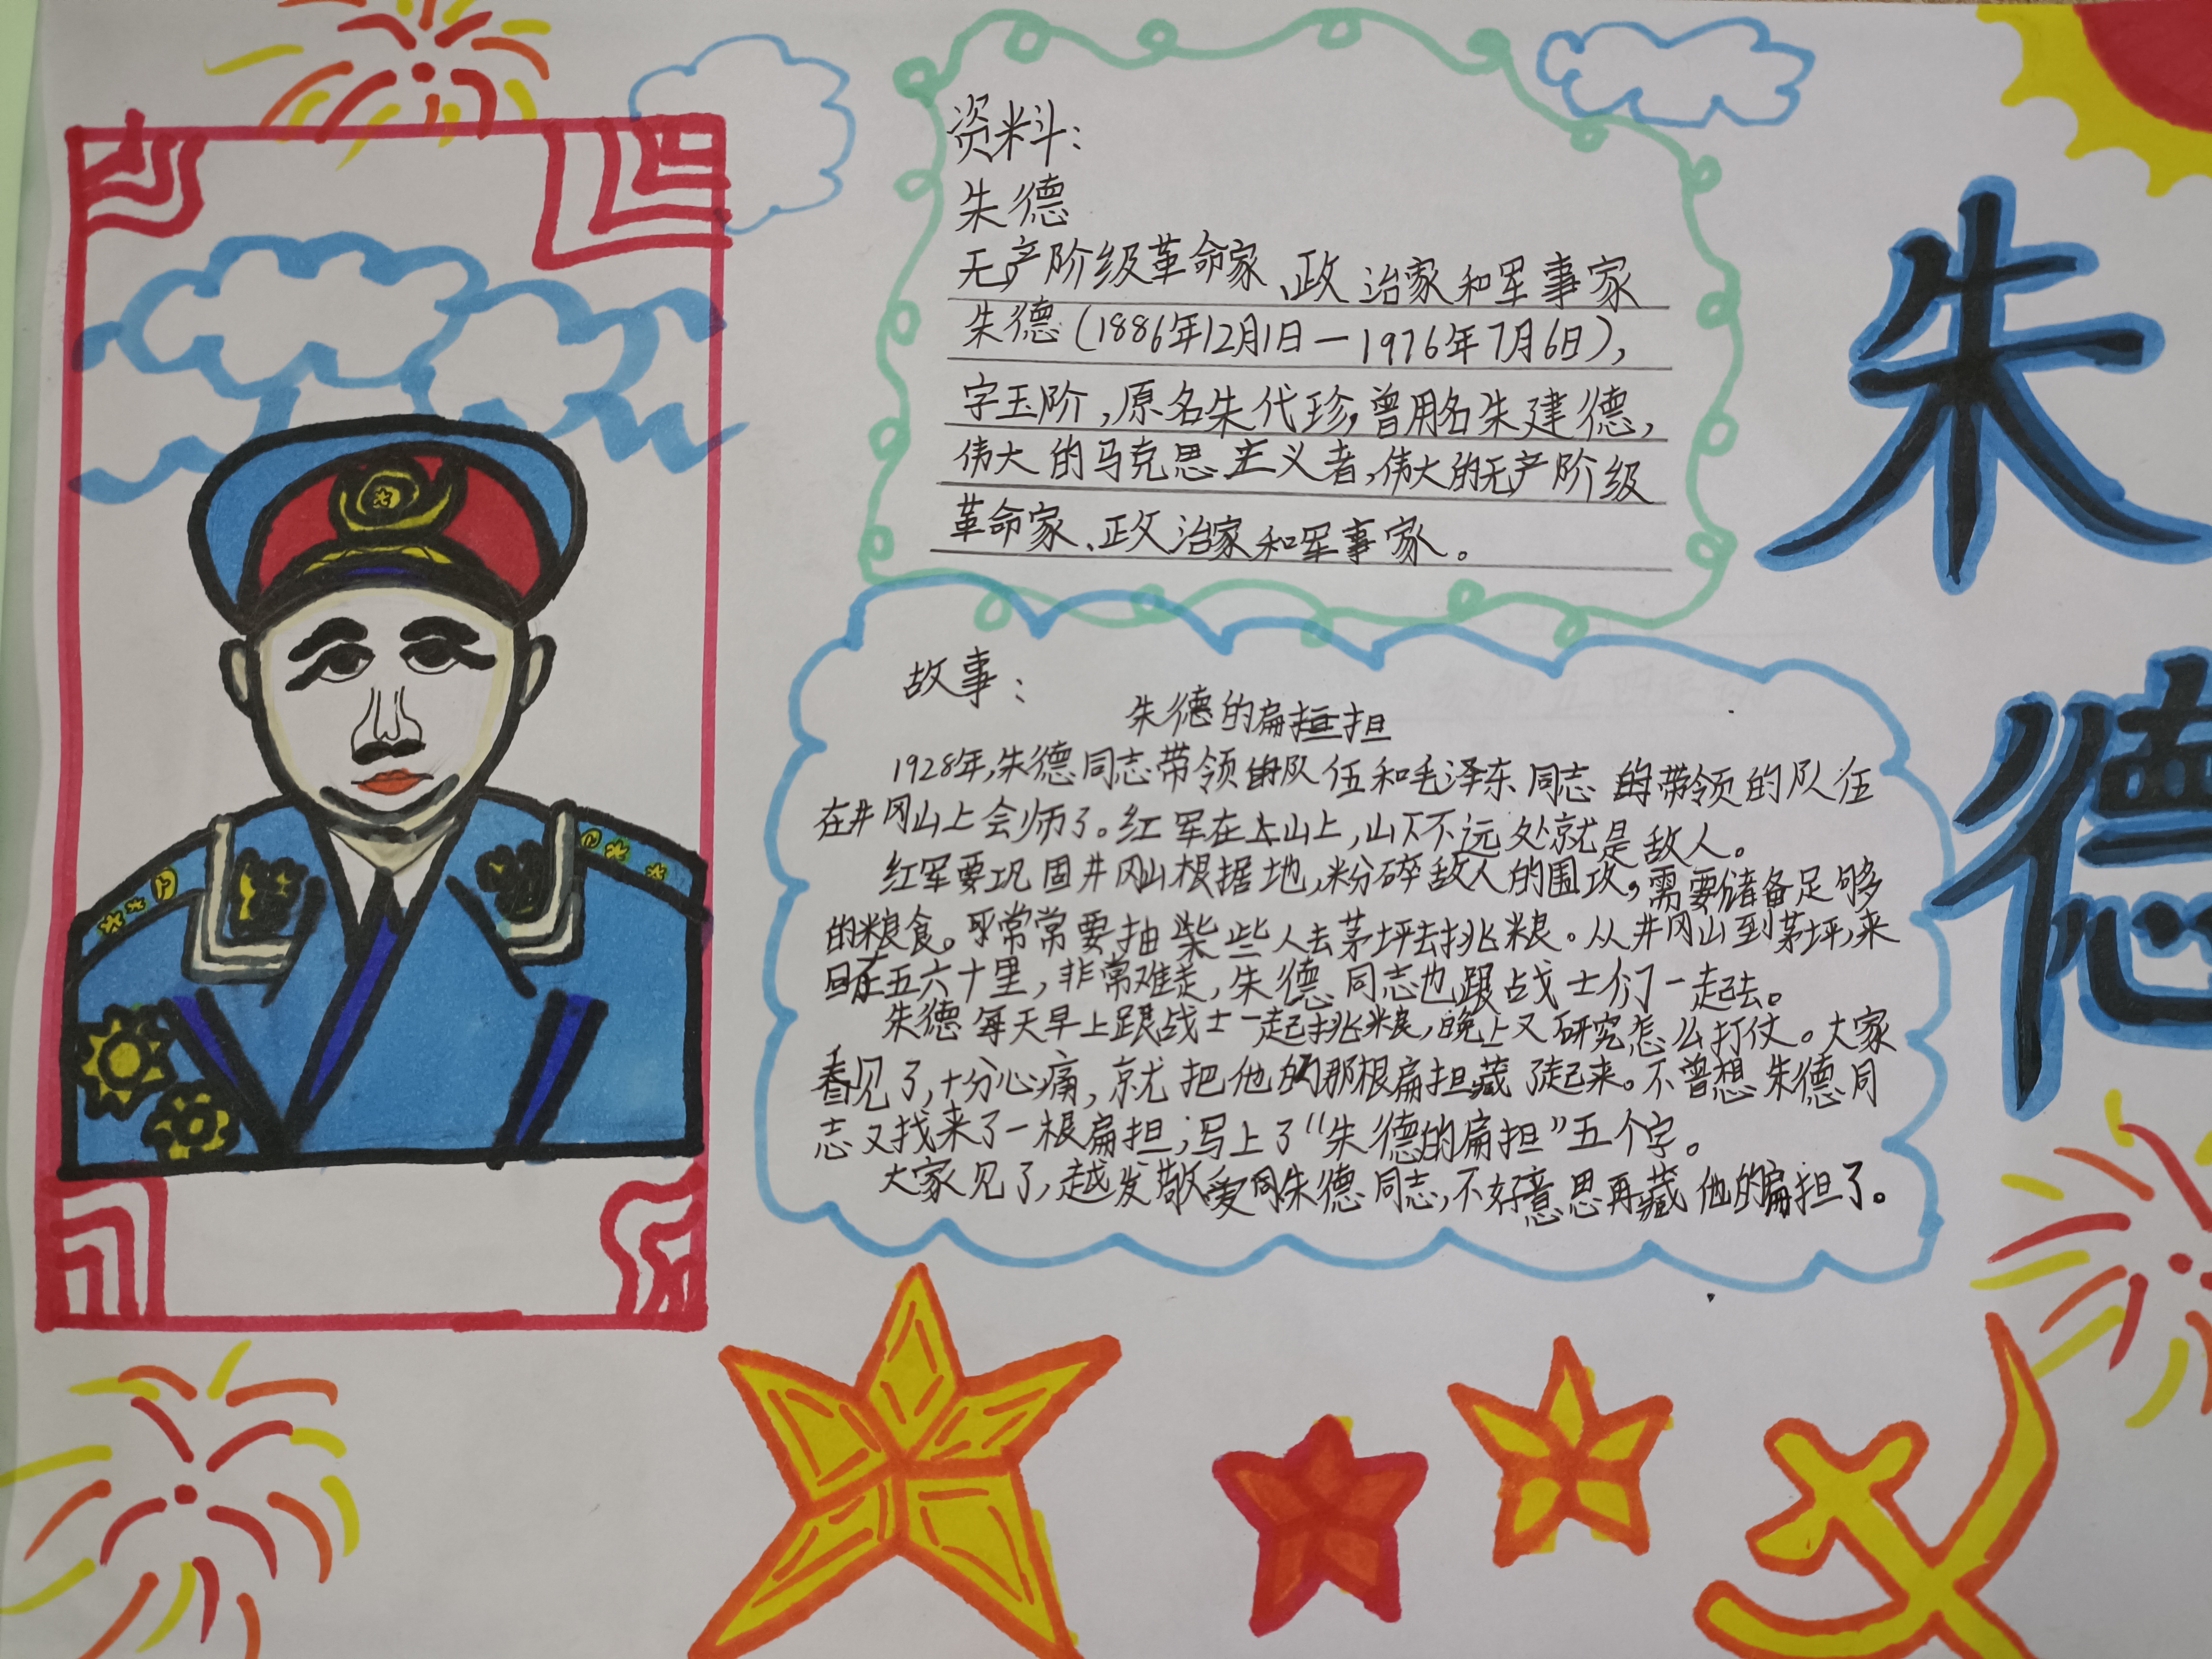 资料：
朱德
无产阶级革命家、政治家和军事家
朱德（1886年12月1日—1976年7月6日），
字玉阶，原名朱代珍，曾用名朱建德，
伟大的马克思主义者，伟大的无产阶级
革命家、政治家和军事家。
朱德
故事：
朱德的扁担
1928年，朱德同志带领的队伍和毛泽东同志的带领的队伍
在井冈山上会师了。红军在山上，山下不远处就是敌人。
红军要巩固井冈山根据地，粉碎敌人的围攻，需要储备足够
的粮食。常常要抽 些人去茅坪去挑粮。从井冈山到茅坪，来
回五六十里，非常难走，朱德同志也跟战士们一起去。
朱德每天早上跟战士一起挑粮，晚上又研究怎么打仗。大家
看见了，十分心痛，就把他的那根扁担藏了起来。不曾想朱德同
志又找来了一根扁担，写上了“朱德的扁担”五个字。
大家见了，越发敬爱朱德同志，不好意思再藏他的扁担了。